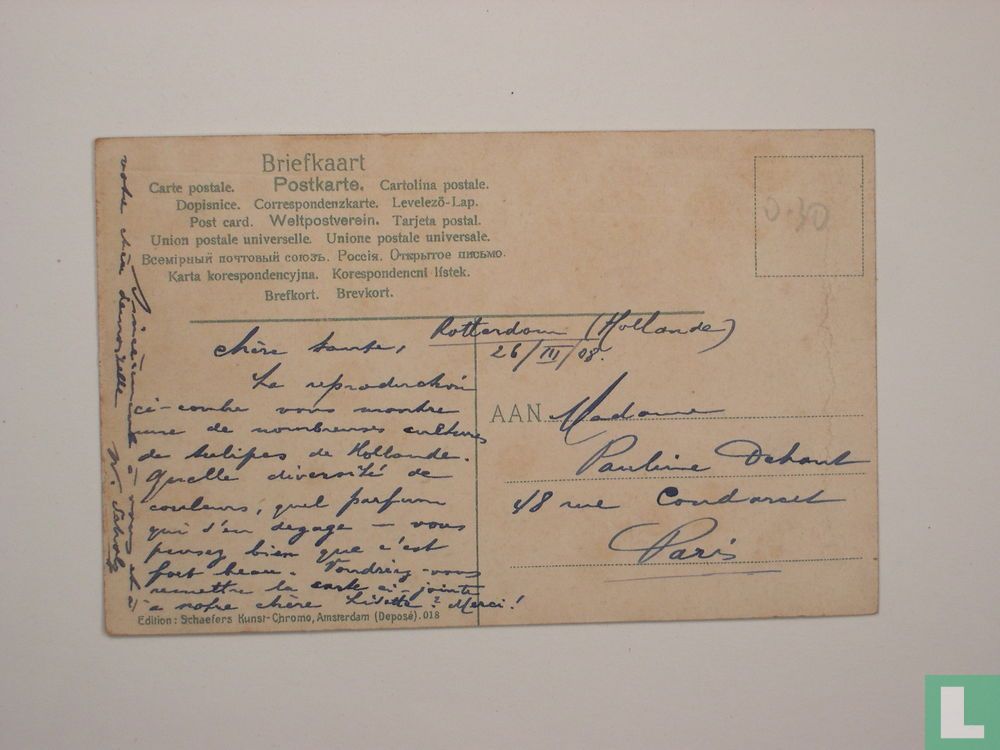 Briefkaart
Carte postale. Postkarte. Cartolina postale.
Dopisnice. Correspondenzkarte. Levelezö-Lap.
Post card. Weltpostverein. Tarjeta postal.
Union postale universelle. Unione postale universale.
Всемірный почтовый союзъ. Россія. Открытое письмо.
Karta korespondencyjna. Korespondencni lístek.
Brefkort. Brevkort.
0.30
Rotterdam (Hollande)
26/III/08.
chère tante,
La reproduction
ci-contre vous montre
une de nombreuses cultures
de tulipes de Hollande.
Quelle diversité de
couleurs, quel parfum
qui s'en degage — vous
pensez bien que c'est
fort beau. Voudriez-vous
remettre la carte ci-jointe
à notre chère Lisette? Merci!
Sincèrement à vous et à
votre chère demoiselle
W.
AAN Madame
Pauline Dehant
48 rue Condorcet
Paris
Edition: Schaefers Kunst-Chromo, Amsterdam (Deposé). 018
L